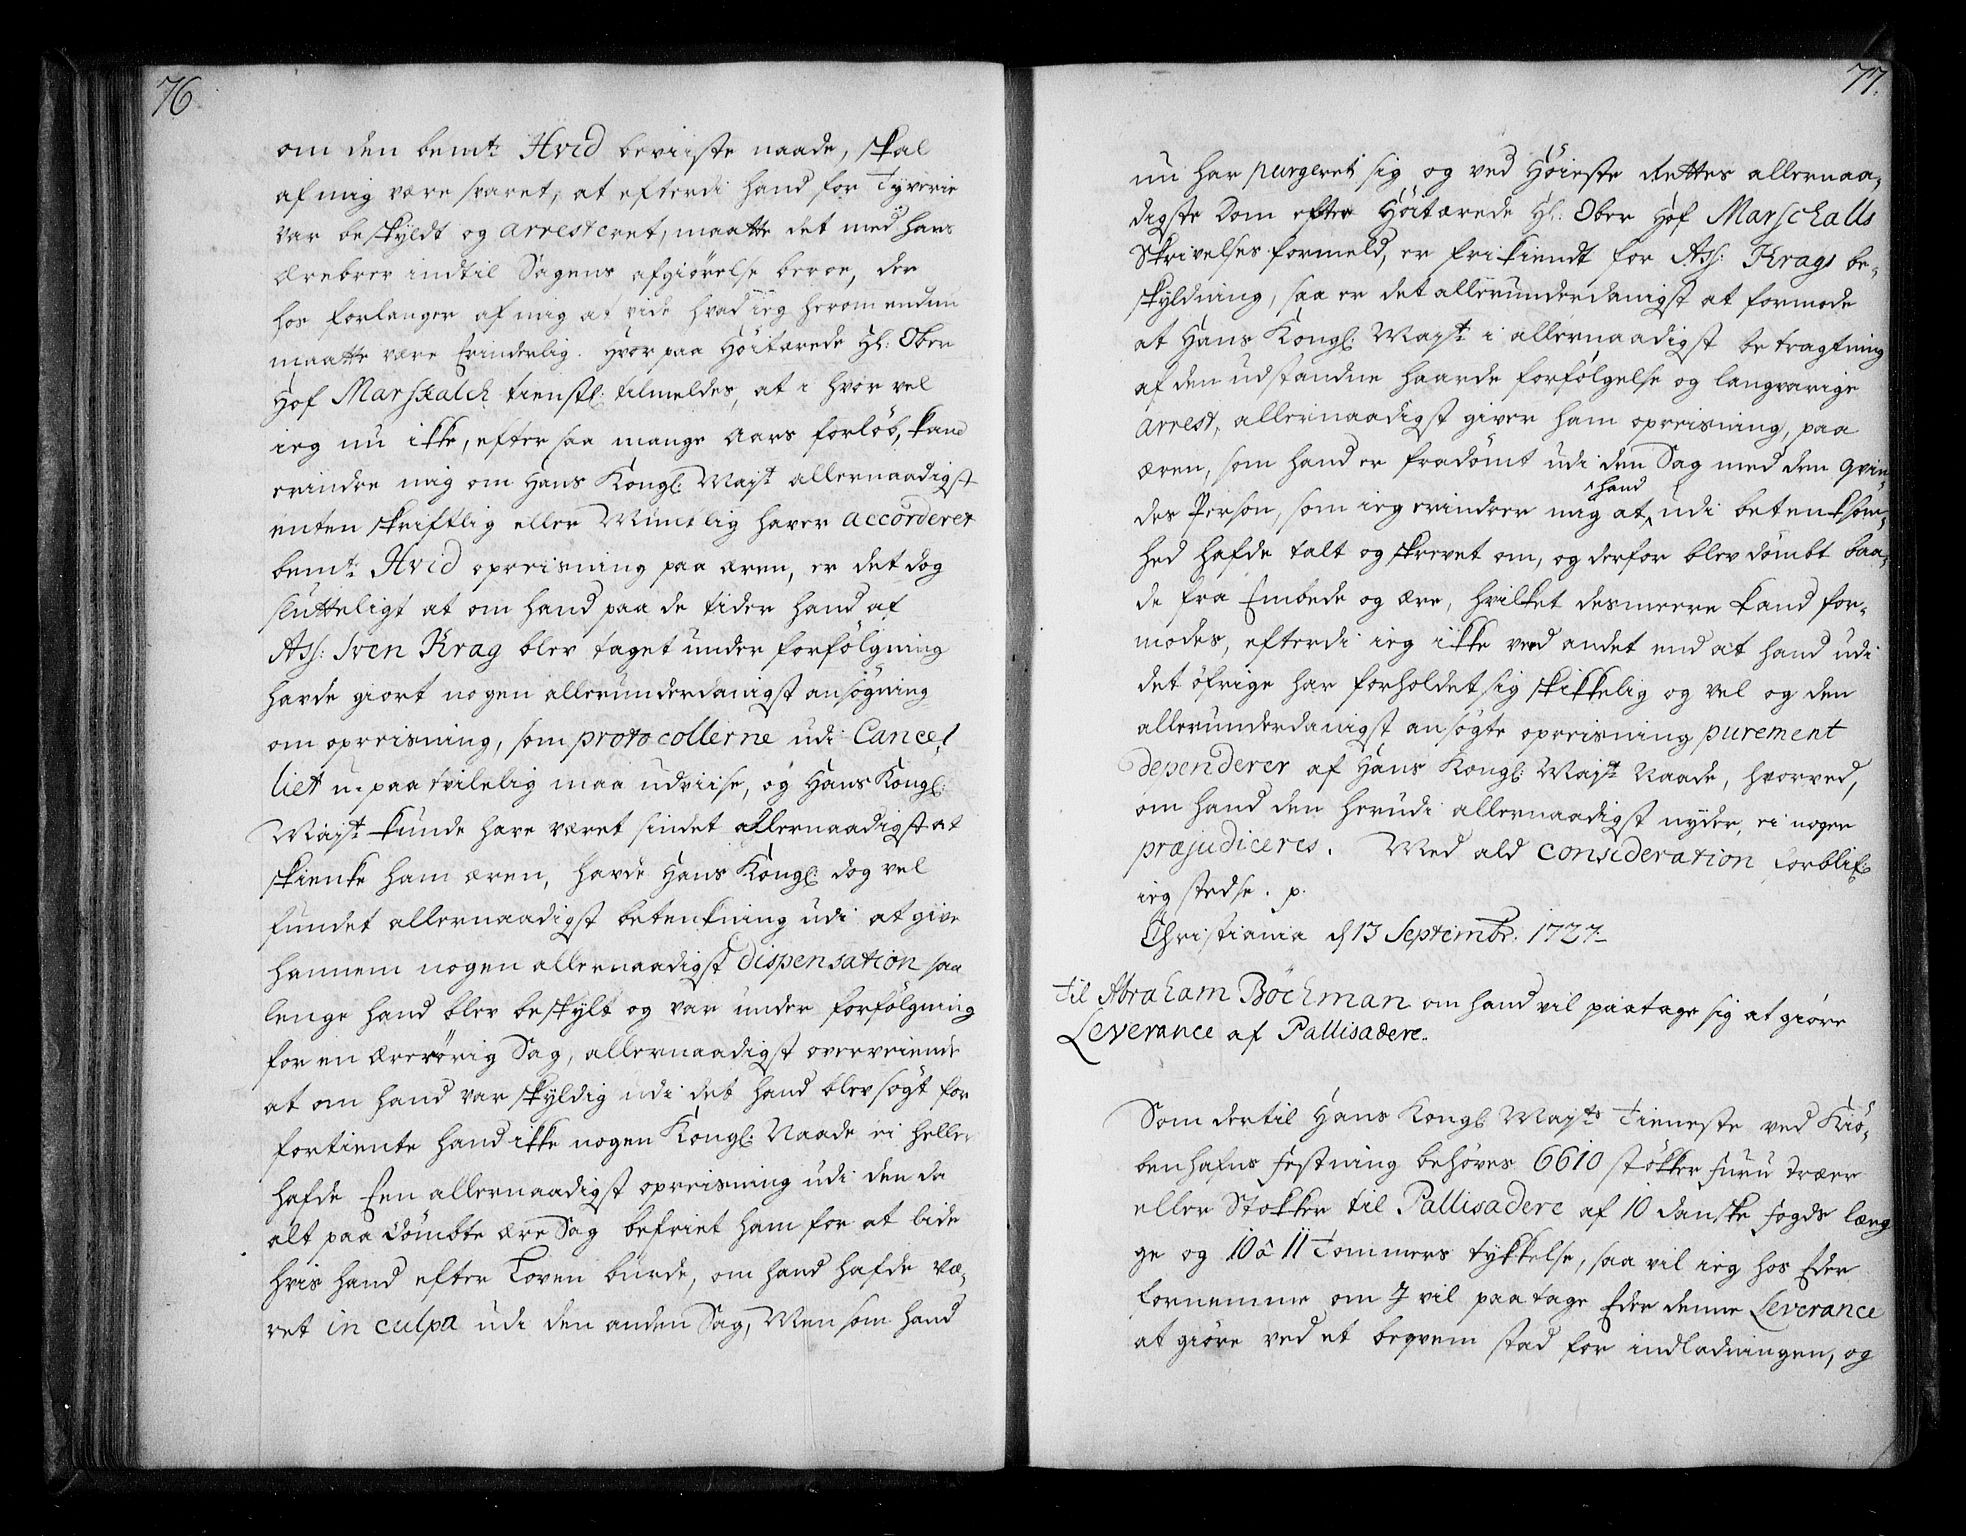 76
om den bemt: Hvid beviiste naade, skal
af mig være svaret, at efterdi hand for Tyverie
var beskyldt og arresteret, maatte det med hans
ærebrev indtil Sagens afgiørelse beroe, der
hos forlanger af mig at vide hvad ieg herom endnu
maatte være Erinderlig. Hvor paa Höitærede Hl: Ober
Hof Marskalck tienstl: tilmeldes, at i hvor vel
ieg nu ikke, efter saa mange Aars forløb, kand
erindre mig om Hans Kongl: Mayt. allernaadigst
enten skriftlig eller Mündtlig haver accorderet
bemt: Hvid opreisning paa æren, er det dog
slutteligt at om hand paa de tider hand af
Ass: Sven Krag blev taget under forfölgning
havde giort nogen allerunderdanigst ansøgning
om opreisning, som protocollerne udi Cancel
liet u-paatvilelig maa udviise, og Hans Kongl:
Mayt. kunde have været sindet allernaadigst at
skienke ham æren, havde Hans Kongl: dog vel
fundet allernaadigst betenkning udi at give
hannem nogen allernaadigst dispensation saa
lenge hand blev beskylt og var under forfölgning
for en ærerörig Sag, allernaadigst overveiende
at om hand var skyldig udi det hand blev søgt for
fortiente hand ikke nogen Kongl: Naade ei heller
hafde Een allernaadigst opreisning udi den da
alt paadömbte ære Sag befriet ham for at lide
hvis hand efter Loven burde, om hand hafde væ-
ret in culpa udi den anden Sag, Men som hand
77.
nu har purgeret sig og ved Höieste Rettes allernaa-
digste Dom efter Höitærede Hl: Ober Hof Marschalls
Skrivelses formeld, er frikiendt for Ass: Krags be-
skyldning, saa er det allerunderdanigst at formode
at Hans Kongl: Mayt. i allernaadigst betragtning
af den udstandne haarde forfølgelse og langvarige
arrest, allernaadigst giver ham opreisning, paa
æren, som hand er fradömt udi den Sag med den qvin-
des Person, som ieg erindrer mig at ^hand udi betenksom-
hed hafde talt og skrevet om, og derfor blev dömbt baa-
de fra Embede og ære, hvilket desmeere kand for-
modes, efterdi ieg ikke veed andet end at hand udi
det öfrige har forholdet sig skikkelig og vel og den
allerunderdanigst ansøgte opreisning purement
dependerer af Hans Kongl: Mayts. Naade, hvorved,
om hand den herudi allernaadigst nyder, ei nogen
præjudiceres. Med ald consideration forblif:
ieg stedse. p.
Christiania d 13 Septembr. 1727-
Til Abraham Böckman om hand vil paatage sig at giöre
Leverance af Pallisadere.
Som der til Hans Kongl. Mayts Tieneste ved Kiö-
benhafns Festning behöves 6610 stökker furu træer
eller Stokker til Pallisadere af 10 danske fogds læng
ge og 10 â 11 Tommers tykkelse, saa vil ieg hos Eder
fornemme om J vil paatage Eder denne Leverance
at giöre ved et beqvem stad for indladningen, og